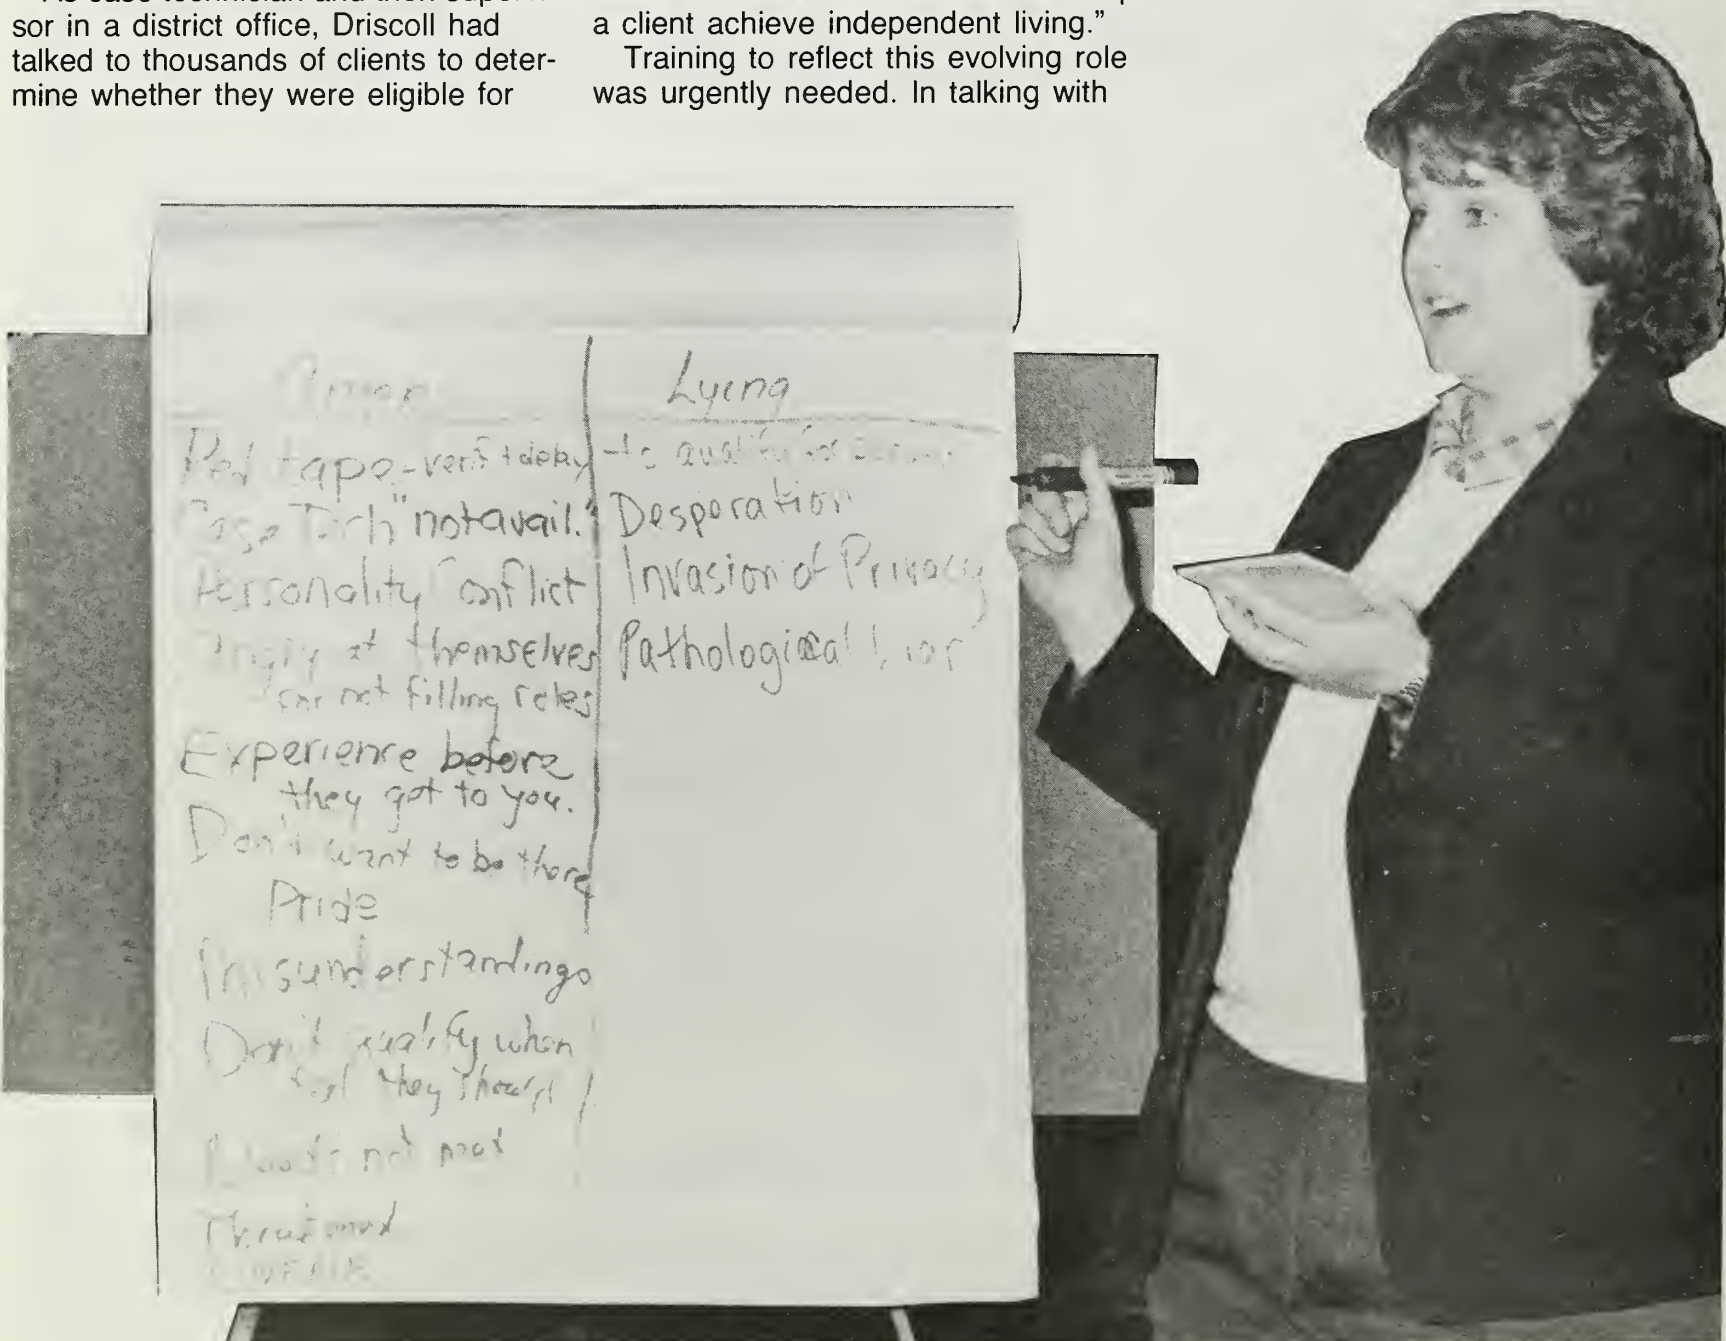 sor in a district office, Driscoll had
talked to thousands of clients to deter-
mine whether they were eligible for
a client achieve independent living.”
Training to reflect this evolving role
was urgently needed. In talking with
Anger
Red tape - verif + delay
Case Tech "not avail."
Personality Conflict
Angry at themselves
for not filling roles
Experience before
they got to you.
Don't want to be there
Pride
Misunderstandings
Don't qualify when
feel they should
Needs not met
Threatened
Lying
- to qualify for
Desperation
Invasion of Privacy
Pathological Liar